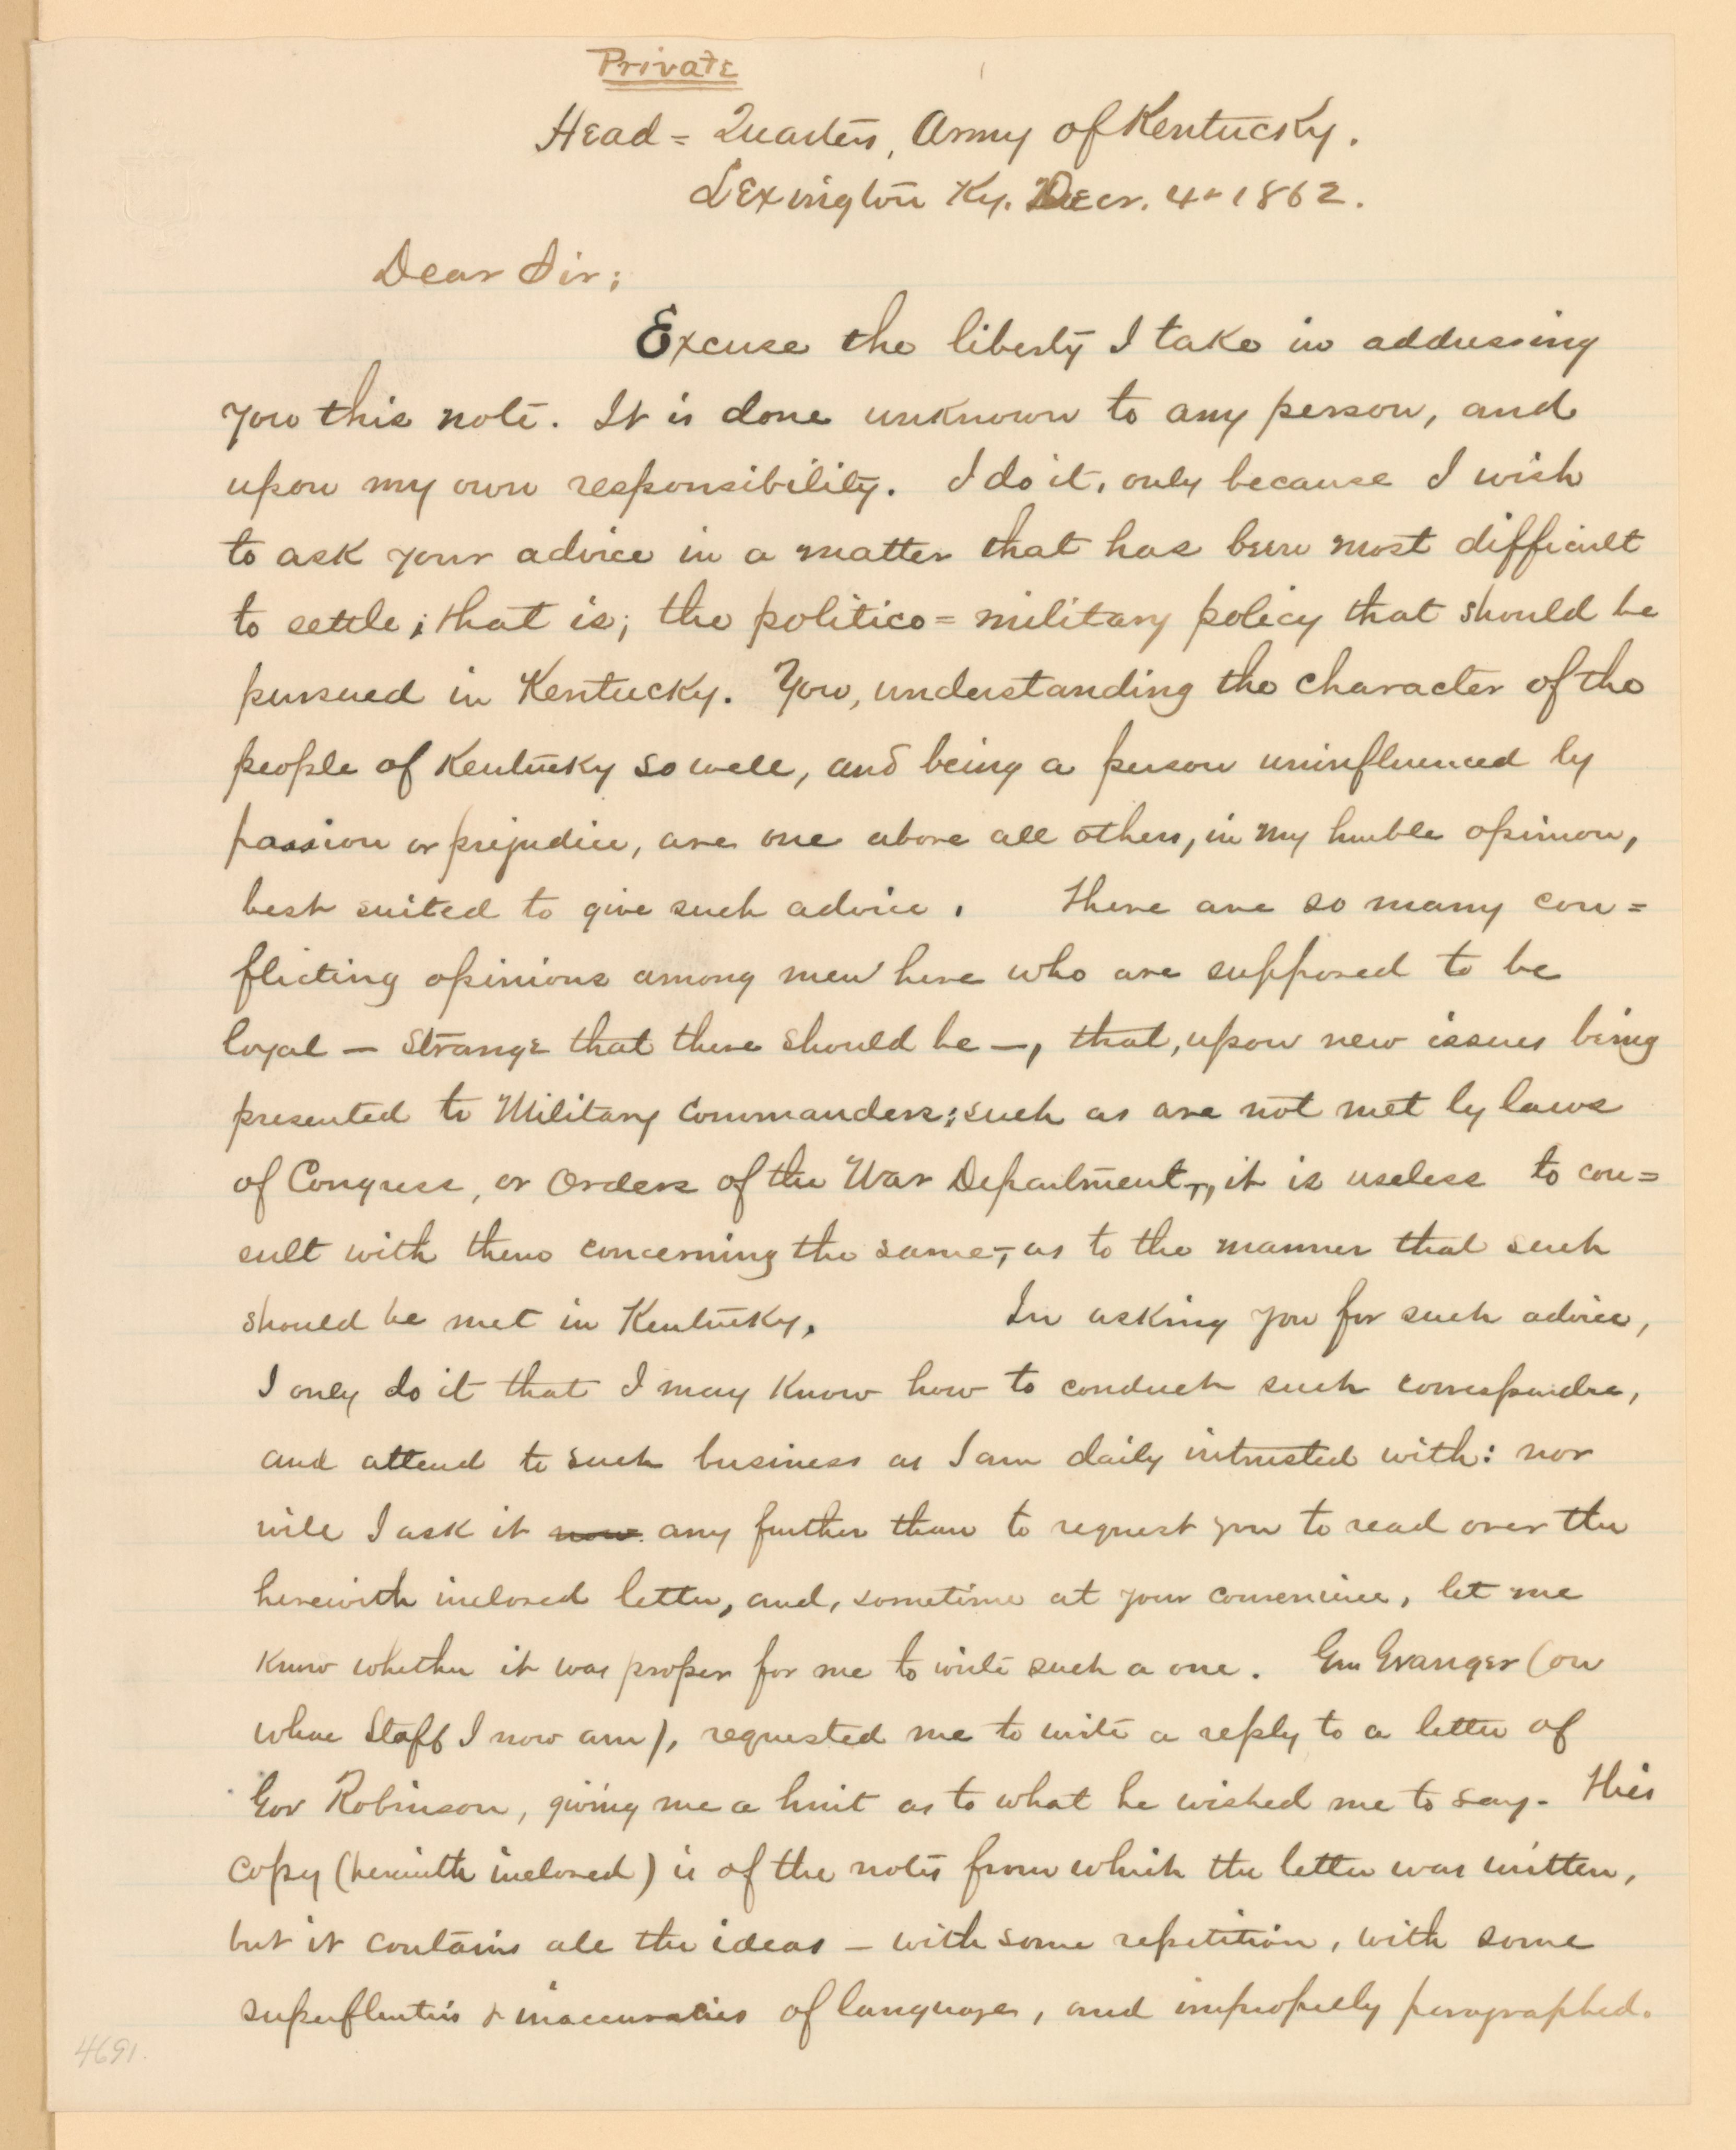 Private
Head = Quarters, Army of Kentucky.
Lexington Ky. Decr. 4th 1862.
Dear Sir;
Excuse the liberty I take in addressing
you this note. It is done unknown to any person, and
upon my own responsibility. I do it, only because I wish
to ask your advice in a matter that has been most difficult
to settle; that is; the politico=military policy that should be
pursued in Kentucky. You, understanding the character of the
people of Kentucky so well, and being a person uninfluenced by
passion or prejudice, are one above all others, in my humble opinion,
best suited to give such advice. There are so many con=
flicting opinions among men here who are supposed to be
loyal — strange that there should be —, that, upon new issues being
presented to Military Commanders; such as are not met by laws
of Congress, or Orders of the War Department, it is useless to con=
sult with them concerning the same, as to the manner that such
should be met in Kentucky. In asking you for such advice,
I only do it that I may know how to conduct such correspondce,
and attend to such business as I am daily intrusted with: nor
will I ask it now any further than to request you to read over the
herewith inclosed letter, and, sometime at your convenience, let me
know whether it was proper for me to write such a one. Gen Granger (on
whose Staff I now am), requested me to write a reply to a letter of
Gov Robinson, giving me a hint as to what he wished me to say. This
copy (herewith inclosed) is of the notes from which the letter was written,
but it contains all the ideas — with some repetition, with some
superfluities & inaccuracies of language, and improperly paragraphed.
4691.